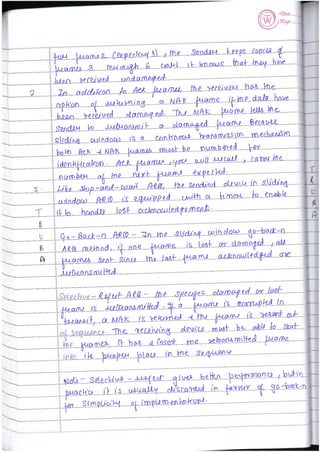 for frame 2 (expecting 3), the sender keeps copies of
frames 3 through 6 until it knows that they have
been received undamaged.
2 In addition to Ack frames, the receiver has the
option of returning a NAK frame if the data have
been received damaged. The NAK frame tells the
sender to retransmit a damaged frame. Because
sliding window is a continuous transmission mechanism
both Ack & NAK frames must be numbered for
identification. Ack frames, you will recall, carry the
number of the next frame expected.
3. Like stop-and-wait ARQ, the sending device in sliding
window ARQ is equipped with a timer to enable
it to handle lost acknowledgements.
Go-Back-n ARQ - In the sliding window go-back-n
ARQ method, if one frame is lost or damaged, all
frames sent since the last frame acknowledged are
retransmitted.
Selective-Reject ARQ - The specific damaged or lost
frame is retransmitted. If a frame is corrupted in
transit, a NAK is returned & the frame is resent out
of sequence. The receiving device must be able to sort
the frames it has & insert the retransmitted frame
into its proper place in the sequence
Note - Selective-reject gives better performance, but in
practice it is usually discarded in favour of go-back-n
for simplicity of implementation.